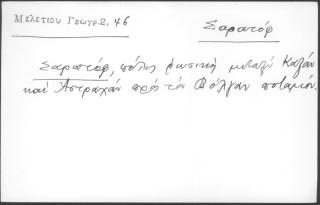 Μελετίου Γεωγρ. 2, 46
Σαρατόφ
Σαρατόφ, πόλις ρωσσικὴ μεταξὺ Καζάν
καὶ Ἀστραχάν πρὸ τὸν Βόλγαν ποταμόν.